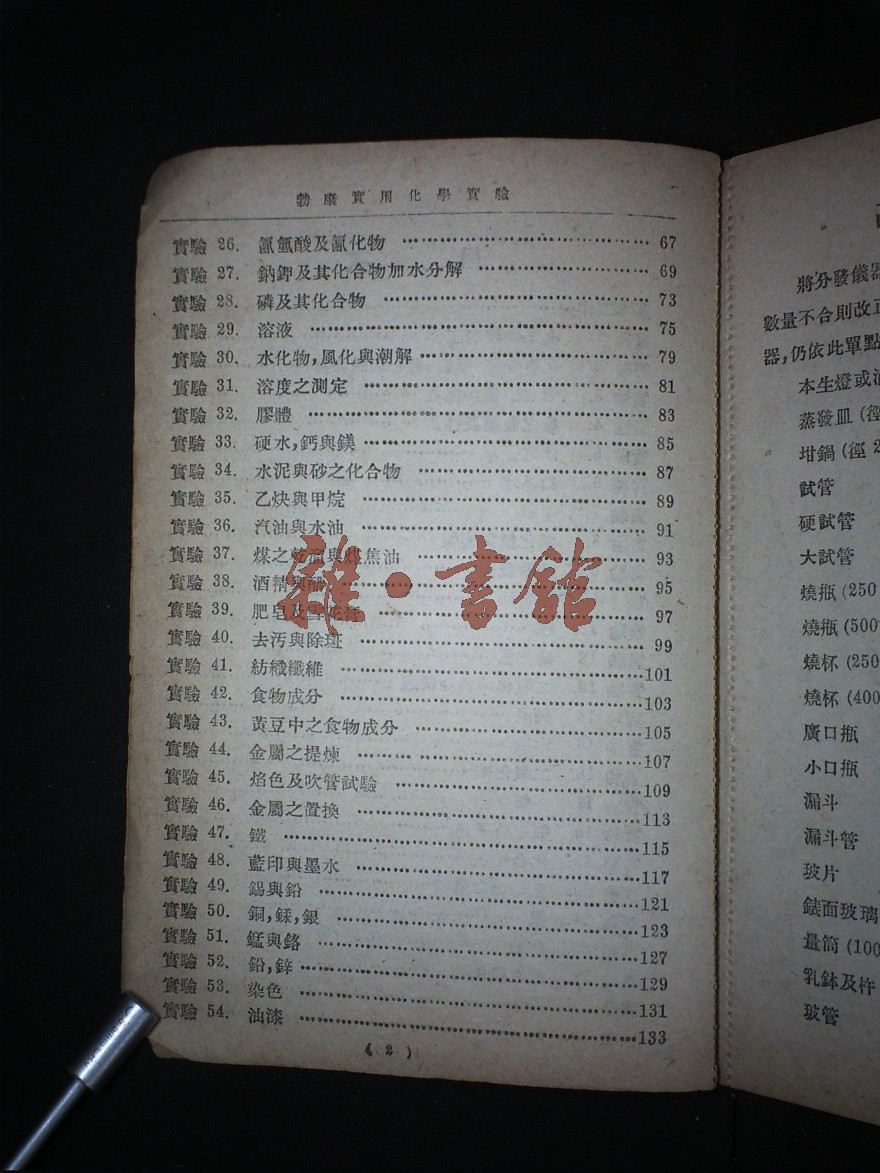 勃康實用化學實驗
實驗 26. 氯氫酸及氯化物 67
實驗 27. 鈉鉀及其化合物加水分解 69
實驗 28. 磷及其化合物 73
實驗 29. 溶液 75
實驗 30. 水化物,風化與潮解 79
實驗 31. 溶度之測定 81
實驗 32. 膠體 83
實驗 33. 硬水,鈣與鎂 85
實驗 34. 水泥與砂之化合物 87
實驗 35. 乙炔與甲烷 89
實驗 36. 汽油與水油 91
實驗 37. 煤之乾溜與煤焦油 93
實驗 38. 酒精與醋 95
實驗 39. 肥皂及雪花膏 97
實驗 40. 去汚與除斑 99
實驗 41. 紡織纖維 101
實驗 42. 食物成分 103
實驗 43. 黃豆中之食物成分 105
實驗 44. 金屬之提煉 107
實驗 45. 焰色及吹管試驗 109
實驗 46. 金屬之置換 113
實驗 47. 鐵 115
實驗 48. 藍印與墨水 117
實驗 49. 錫與鉛 121
實驗 50. 銅,銾,銀 123
實驗 51. 錳與鉻 127
實驗 52. 鉛,鋅 129
實驗 53. 染色 131
實驗 54. 油漆 133
( 2 )
雜·書館
將分發儀器
數量不合則改正
器,仍依此單點
本生燈或酒
蒸發皿 (徑
坩鍋 (徑 2
試管
硬試管
大試管
燒瓶 (250
燒瓶 (500
燒杯 (250
燒杯 (400
廣口瓶
小口瓶
漏斗
漏斗管
玻片
錶面玻璃
量筒 (100
乳鉢及杵
玻管